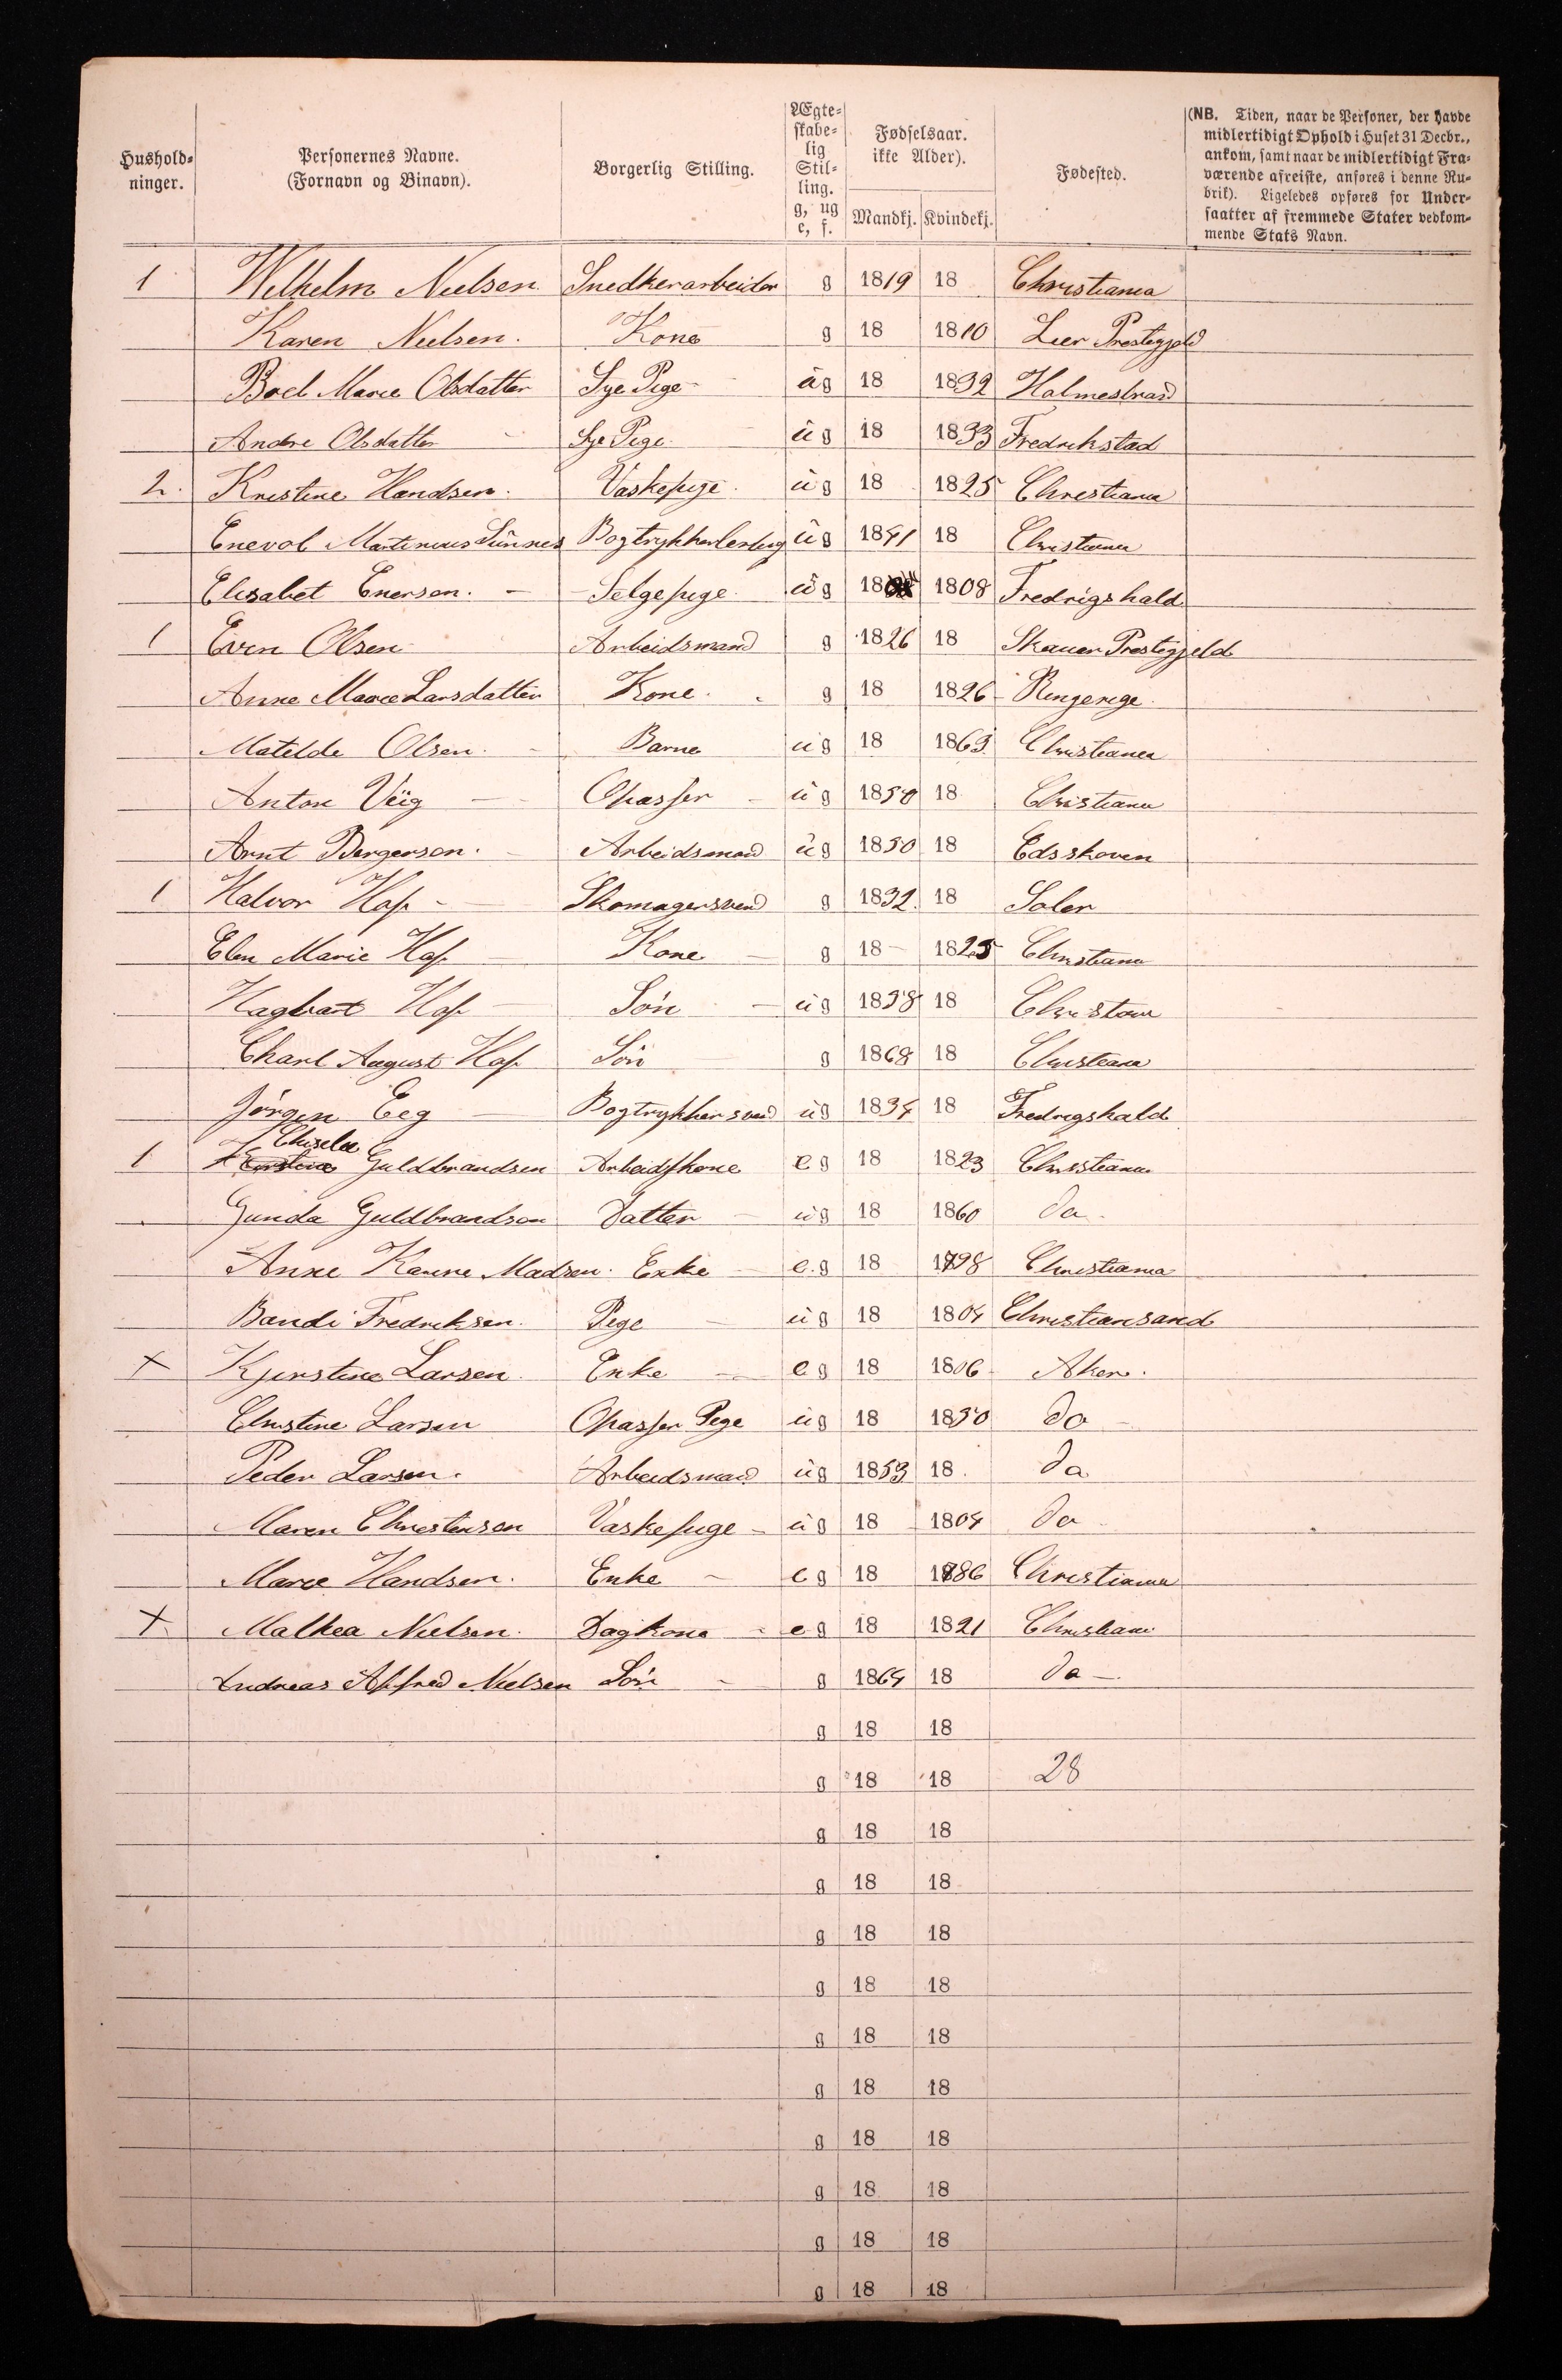 Hushold-
ninger.
Personernes Navne.
(Fornavn og Binavn).
Borgerlig Stilling.
Ægte-
skabe-
lig
Stil-
ling.
g, ug
e, f.
Fødselsaar.
ikke Alder).
Mandkj. Kvindekj.
Fødested.
(NB. Tiden, naar de Personer, der havde
midlertidigt Ophold i Huset 31 Decbr.,
ankom, samt naar de midlertidigt Fra-
værende afreiste, anføres i denne Ru-
brik). Ligeledes opføres for Under-
saatter af fremmede Stater vedkom-
mende Stats Navn.
1 Wilhelm Nielsen Snedkerarbeider g 1819 18 Christiania
Karen Nielsen. Kone g 18 1810 Lier Prestegjeld
Boel Marie Olsdatter Sye Pige ug 18 1832 Holmestrand
Andre Olsdatter Sye Pige ug 18 1833 Fredrikstad
2. Kristine Handsen. Vaskepige ug 18 1825 Christiania
Enevol Martinius Sünnes Bogtrykkerlerling ug 1851 18 Christiania
Elisabet Enersen. Selgepige ug 18 1808 Fredrigshald
1 Even Olsen Arbeidsmand g 1826 18 Skauer Prestegjeld
Anne Marie Larsdatter Kone. g 18 1826 Ringerige
Matilde Olsen. Barne ug 18 1863 Christiania
Anton Viig Opasser ug 1850 18 Christiania
Arnt Bergersen. Arbeidsmand ug 1850 18 Edsskoven
1 Halvor Hof Skomagersvend g 1832. 18 Soler
Elen Marie Hof Kone g 18 1825 Christiania
Hagbart Hof Søn ug 1858 18 Christania
Charl August Hof Søn g 1868 18 Christiania
Jørgen Eeg Bogtrykkersvend ug 1834 18 Fredrigshald
Chiselee
1 Guldbrandsen Arbeidskone eg 18 1823 Christiania
Gunda Guldbrandsen Datter ug 18 1860 do
Anne Karine Madsen. Enke e.g 18 1798 Christiania
Bandi Fredriksen. Pige ug 18 1804 Christiansand
+ Kjerstine Larsen. Enke eg 18 1806 Aker.
Christine Larsen Opasser Pige ug 18 1850 do
Peder Larsen. Arbeidsmand ug 1853 18 do
Maren Christensen Vaskepige ug 18 1804 do
Marie Handsen. Enke eg 18 1786 Christiania
+ Malkea Nielsen. Dagkone eg 18 1821 Christiani
Andreas Alfred Nielsen Søn g 1864 18 do
g 18 18
g 18 18 28
g 18 18
g 18 18
g 18 18
g 18 18
g 18 18
g 18 18
g 18 18
g 18 18
g 18 18
g 18 18